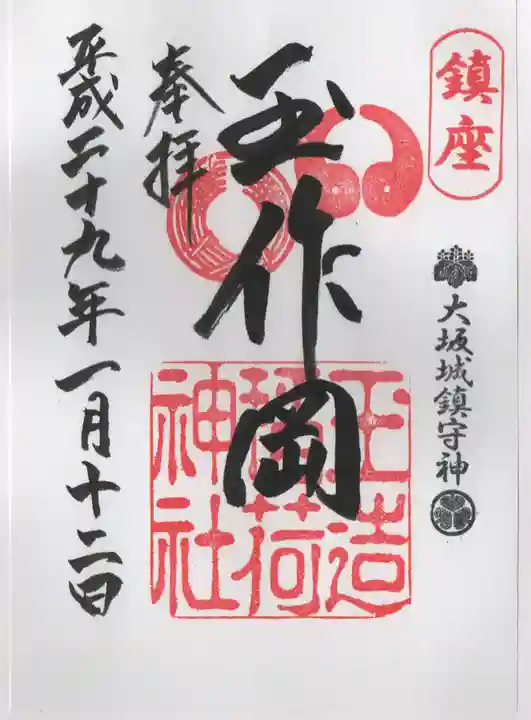 鎮座
大坂城鎮守神
玉作岡
玉造
稲荷
神社
奉拝
平成二十九年一月十二日